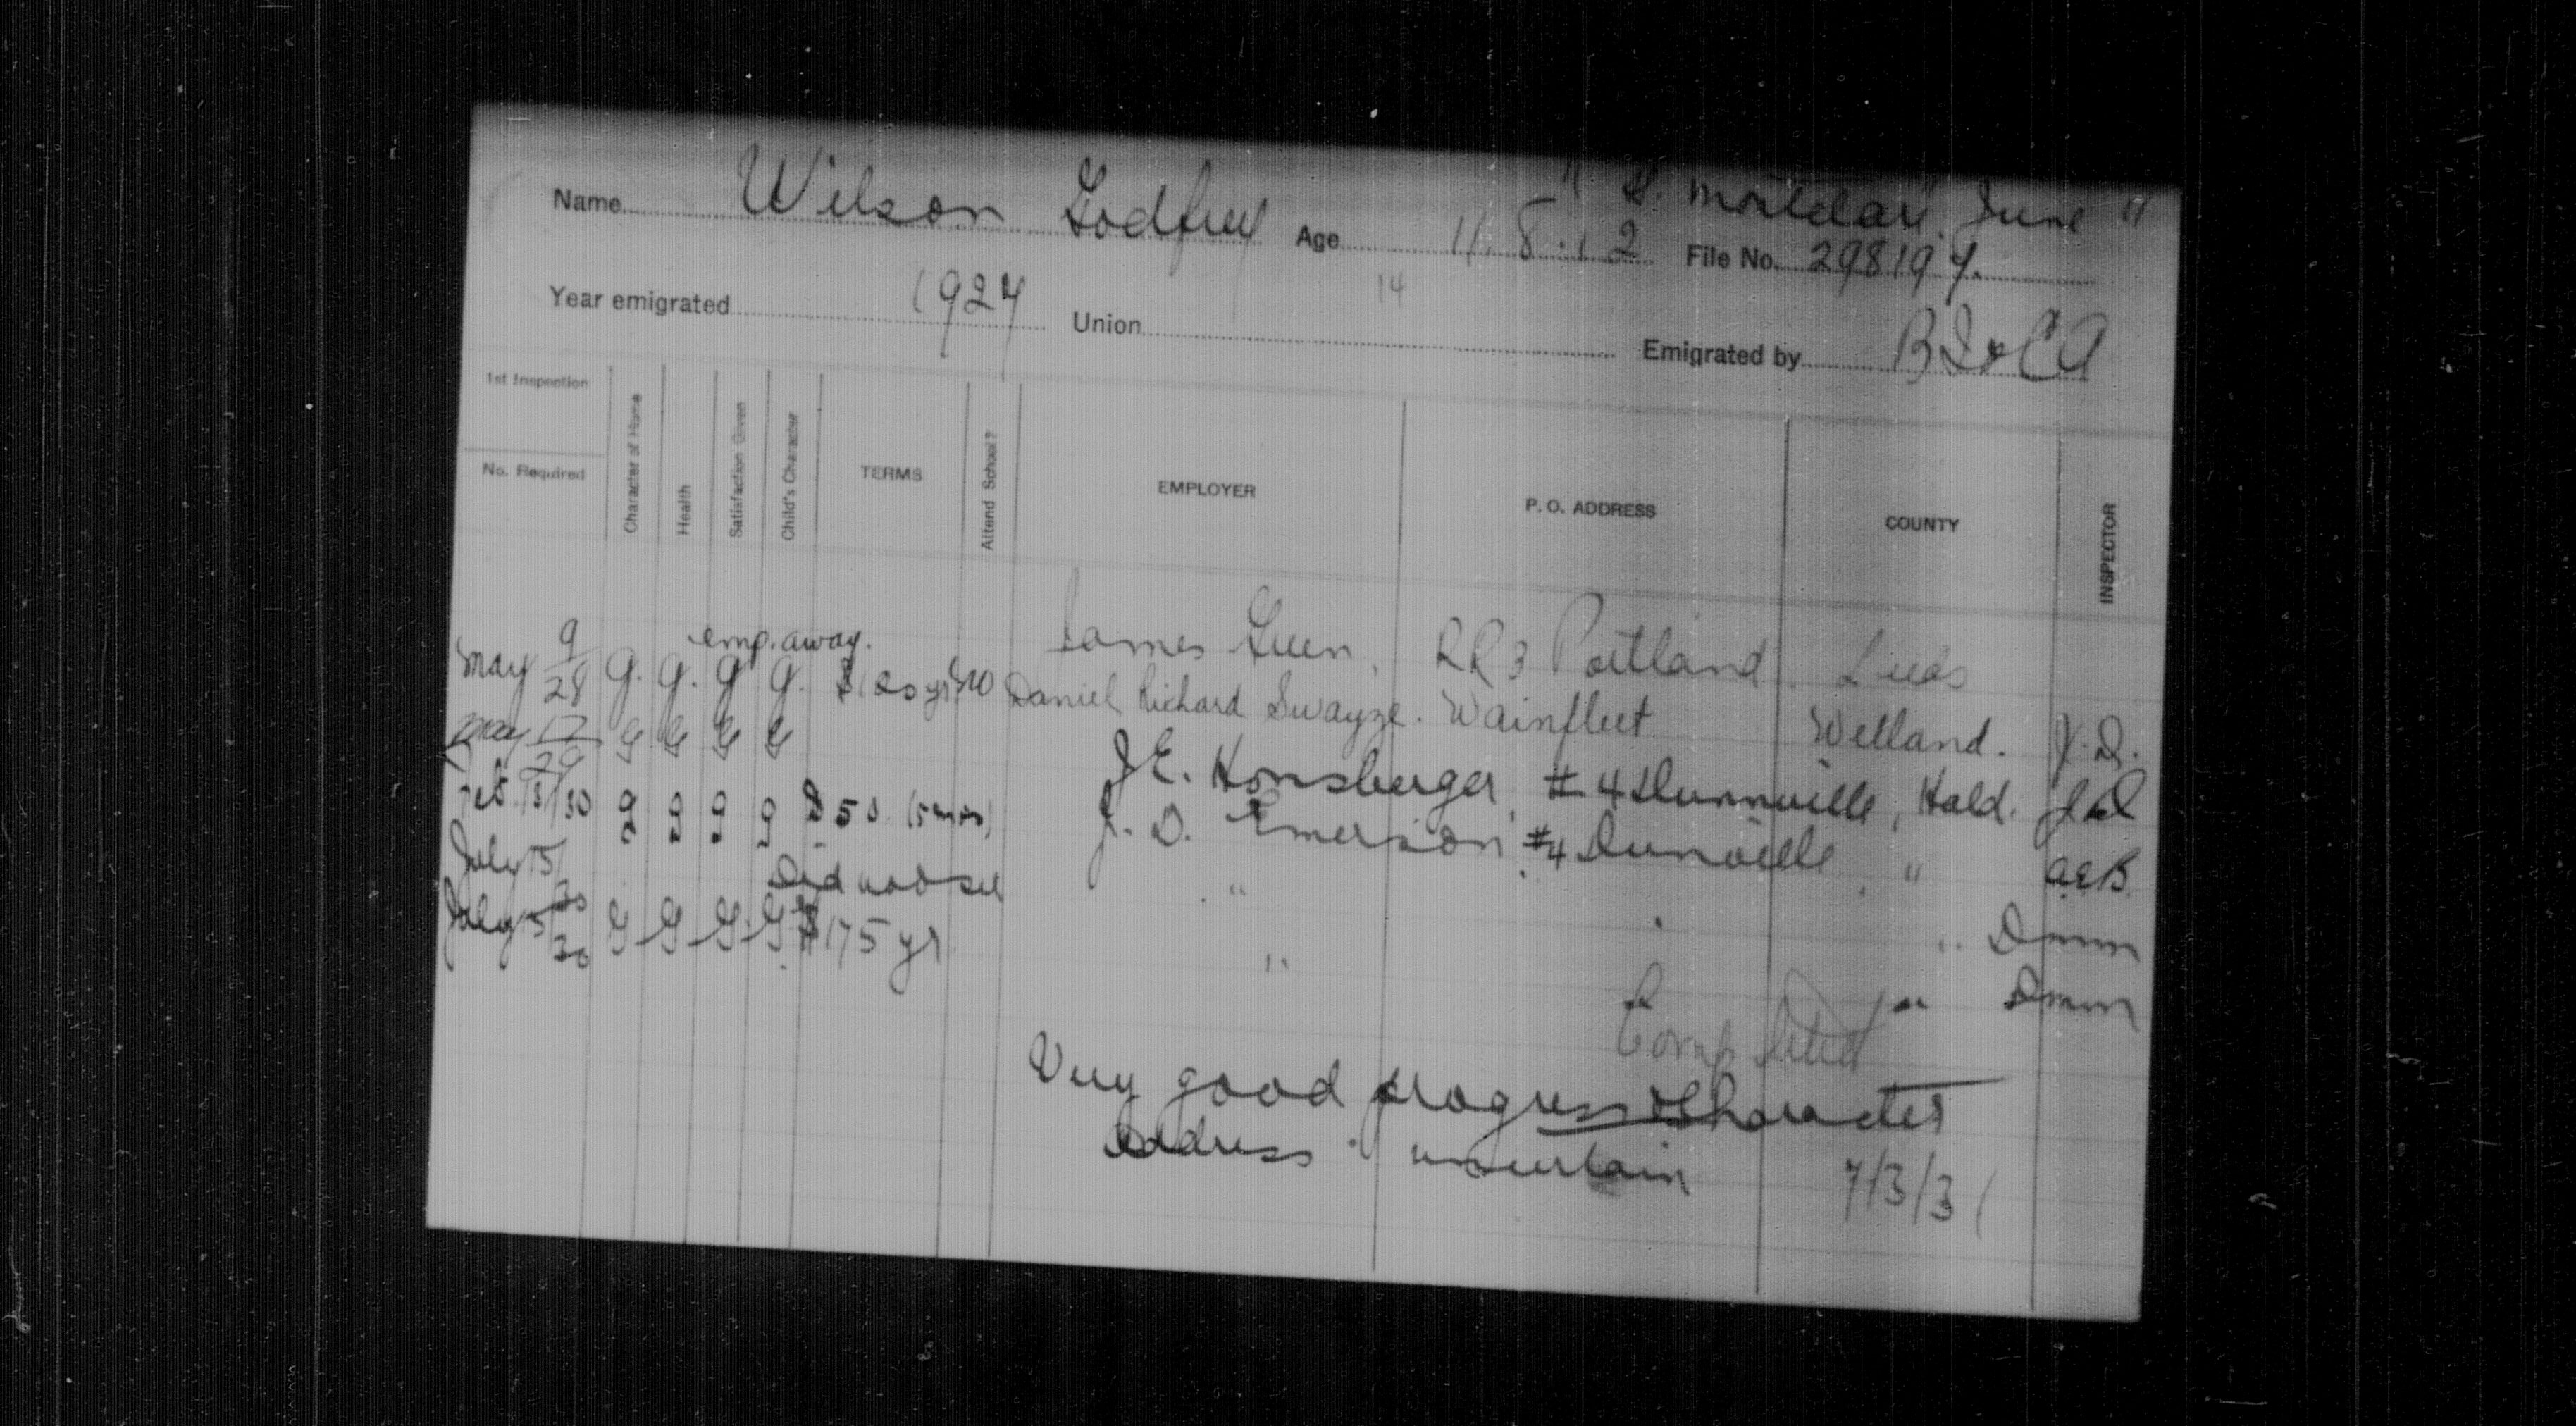 "S. Montclare" June 11
Name Wilson Godfrey Age 11.8.12 File No. 298194.
Year emigrated 1927 Union 14 Emigrated by BI&CA
1st Inspection
No. Required Character of Home Health Satisfaction Given Child's Character TERMS Attend School? EMPLOYER P. O. ADDRESS COUNTY INSPECTOR
James Green, RR3 Portland Leeds
emp. away.
May 9/28 g. g. g g. $120 yr no Daniel Richard Swayze. Wainfleet Welland.
May 17/29 G G G G J E. Honsberger, #4 Dunnville, Hald.
Feb. 13/30 g g g g $50. (5 mos) J. D. Emerson, #4 Dunnville " AEB
July 15/30 Did not see " " Dmm
July 15/30 G G G G $175 yr " " Dmm
Completed
Very good progress & character
address uncertain 7/3/31